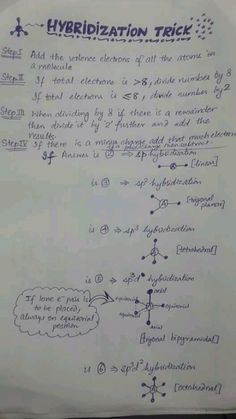 HYBRIDIZATION TRICK
Step I Add the valence electrons of all the atoms in
a molecule
Step II If total electrons is >8, divide number by 8
If total electrons is ≤8, divide number by 2
Step III When dividing by 8 if there is a remainder
then divide it by '2' further and add the
results
Step IV If there is a minus charge add that much electron
If a plus charge then subtract
If Answer is ② ⇒ sp hybridisation
[linear]
is ③ ⇒ sp² hybridization
[trigonal
planar]
is ④ ⇒ sp³ hybridization
[tetrahedral]
is ⑤ ⇒ sp³d hybridization
axial
equatorial
If lone e⁻ pair is
to be placed,
always on equatorial
position
axial
[trigonal bipyramidal]
is ⑥ ⇒ sp³d² hybridization
[octahedral]